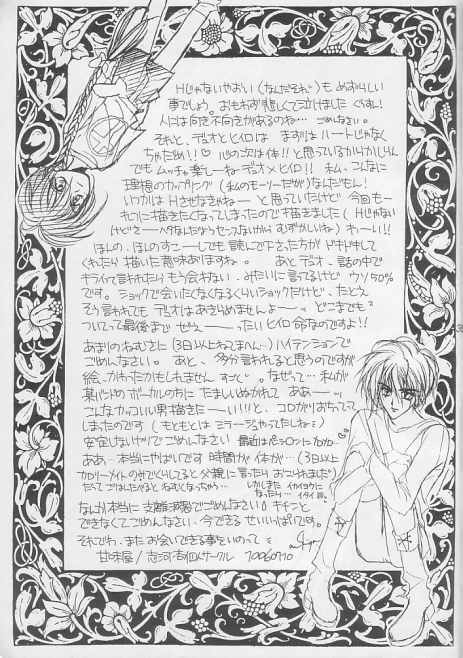 Hじゃないやおい(なんだそれ)も めずらしい
事でしょう。おもわず悲しくて泣けました
人には向き不向きがあるのね… ごめんなさい。
それと、デュオとヒロは まずはハートじゃなく
ちゃだめ!!♡ 心の次は体!!と思っている
でも ムッチャ楽しーねデュオ×ヒイロ!! 私、こんなに
理想のカップリング(私のモーソーだが)なんだもん!
いつかは Hさせなきゃねー と思っていたけど 今回もー
れつに描きたくなってしまったので描きました(Hじゃない
けどさーヘタなんだよセンスないから むずかしいね)わーい!!
ほんの、ほんのすこーしでも 読んで下さった方が ドキドキして
くれたら 描いた意味ありますね。 あと デュオ、話の中で
キライって言われたら もう会わない みたいに言ってるけど ウソ50%
です。ショックで会いたくなくなるくらいショックだけど、たとえ
そう言われても デュオはあきらめませんよー どこまでも
ついてって最後まで ぜぇーったい ヒイロ命なのですよ!!
あまりのねむさに(3日以上ねてまへん)ハイテンションで
ごめんなさい。 あと、多分言われると思うのですが
絵、かわったかもしれません すーごく。なぜって…私が
某バンドのボーカルの方に たましいぬかれて ああー
こんなカッコいい男描きたーい!!!と、コロがりおちてって
しまったのです(もともとは ミラージュやってたしねー)
安定しないかんじで ごめんなさい
ああ…本当にやばいです 時間が 体が…(3日以上
カロリーメイトのみでくらしてると父親に言ったら おこられました)
だって ごはんたべると ねむくなっちゃう… しかしまた イカイヨウに
なったら… イタイ
なんか本当に 支離滅裂でごめんなさい。キチンと
できなくてごめんなさい、今できる せいいっぱいです。
それでわ、またお会いできる事をいのって
甘味屋/志河 個人サークル